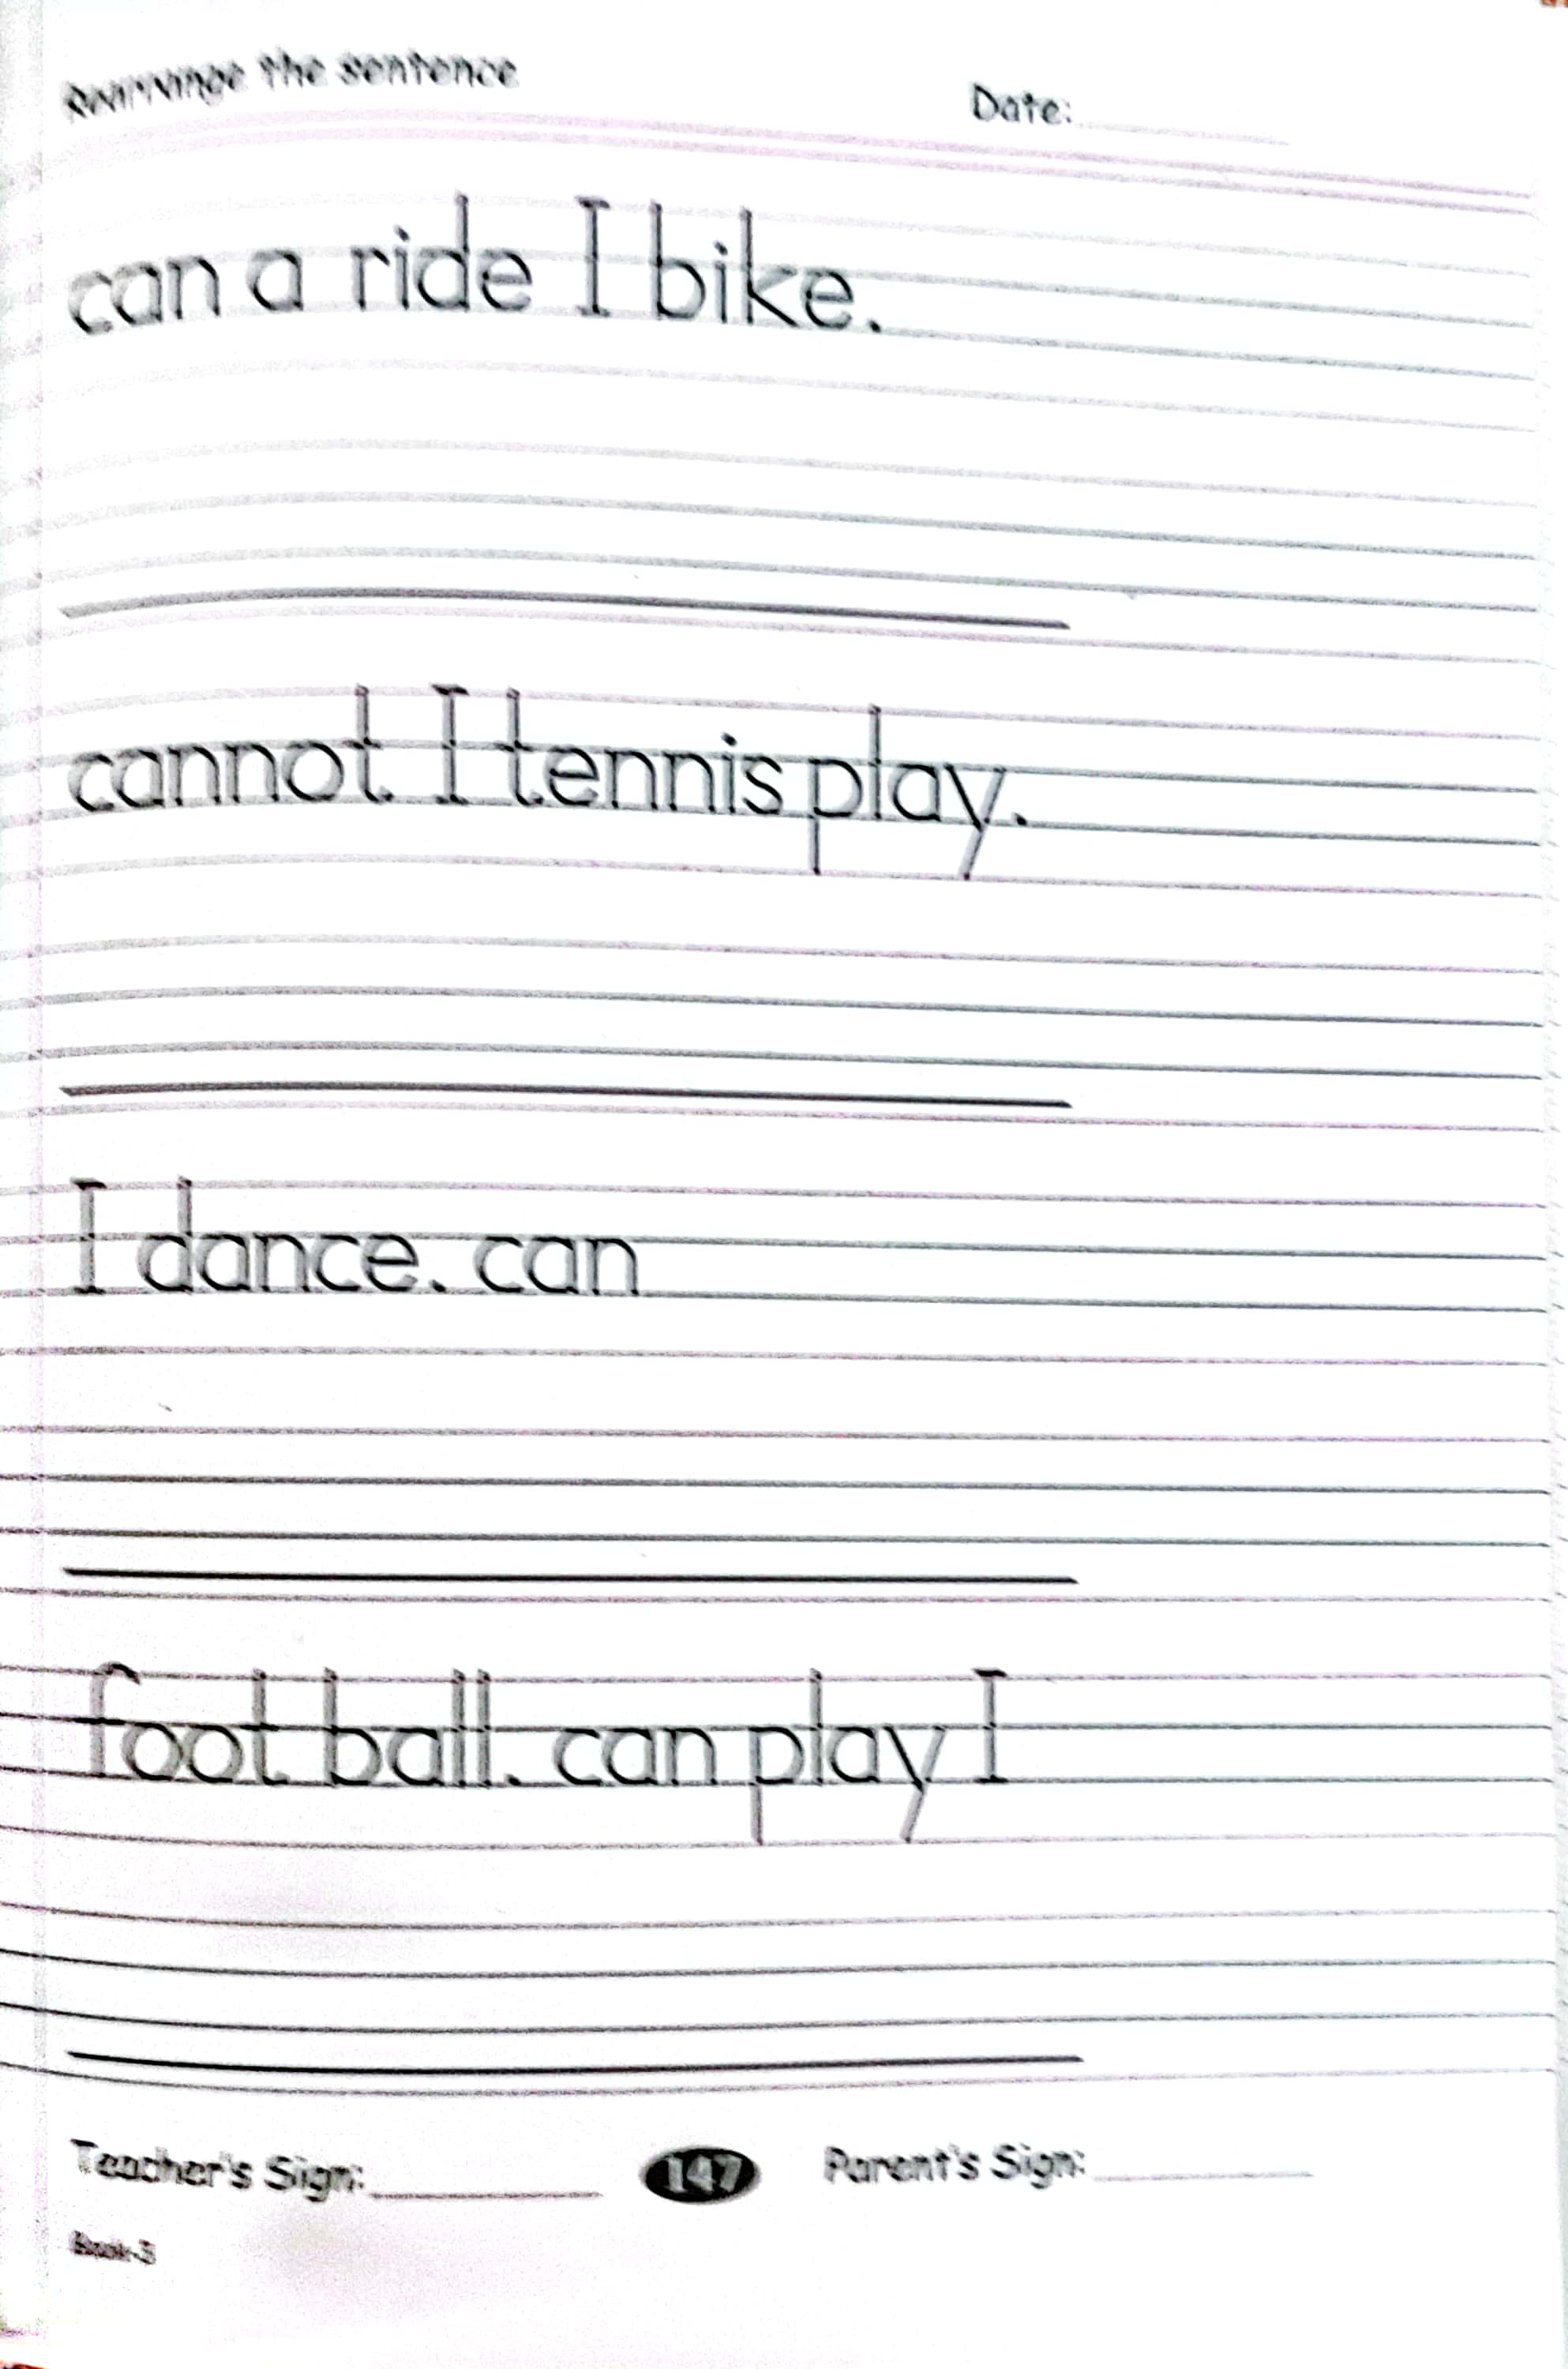 Rearrange the sentence
Date:
can a ride I bike.
cannot I tennis play.
I dance. can
foot ball. can play I
Teacher's Sign:
147
Parent's Sign:
Book-3